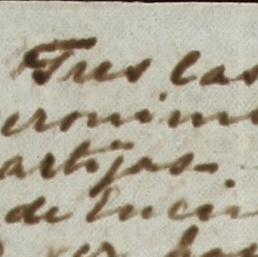 Tres las
eronim
artijas-
de Encin